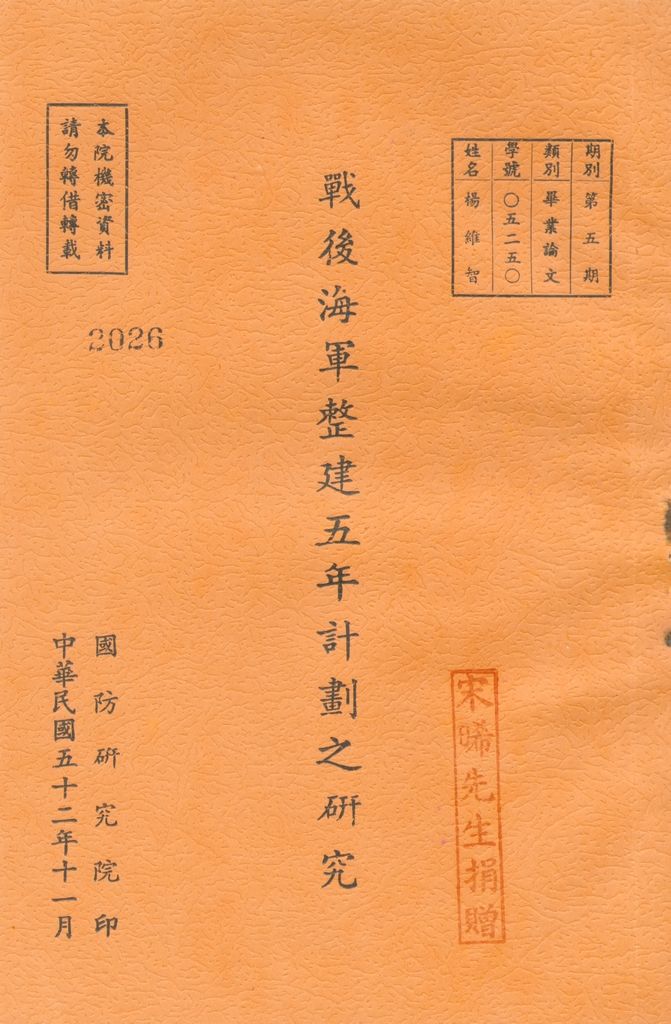 期別 第五期
類別 畢業論文
學號 〇五二五〇
姓名 楊維智
戰後海軍整建五年計劃之研究
本院機密資料
請勿轉借轉載
2026
國防研究院印
中華民國五十二年十一月
宋晞先生捐贈